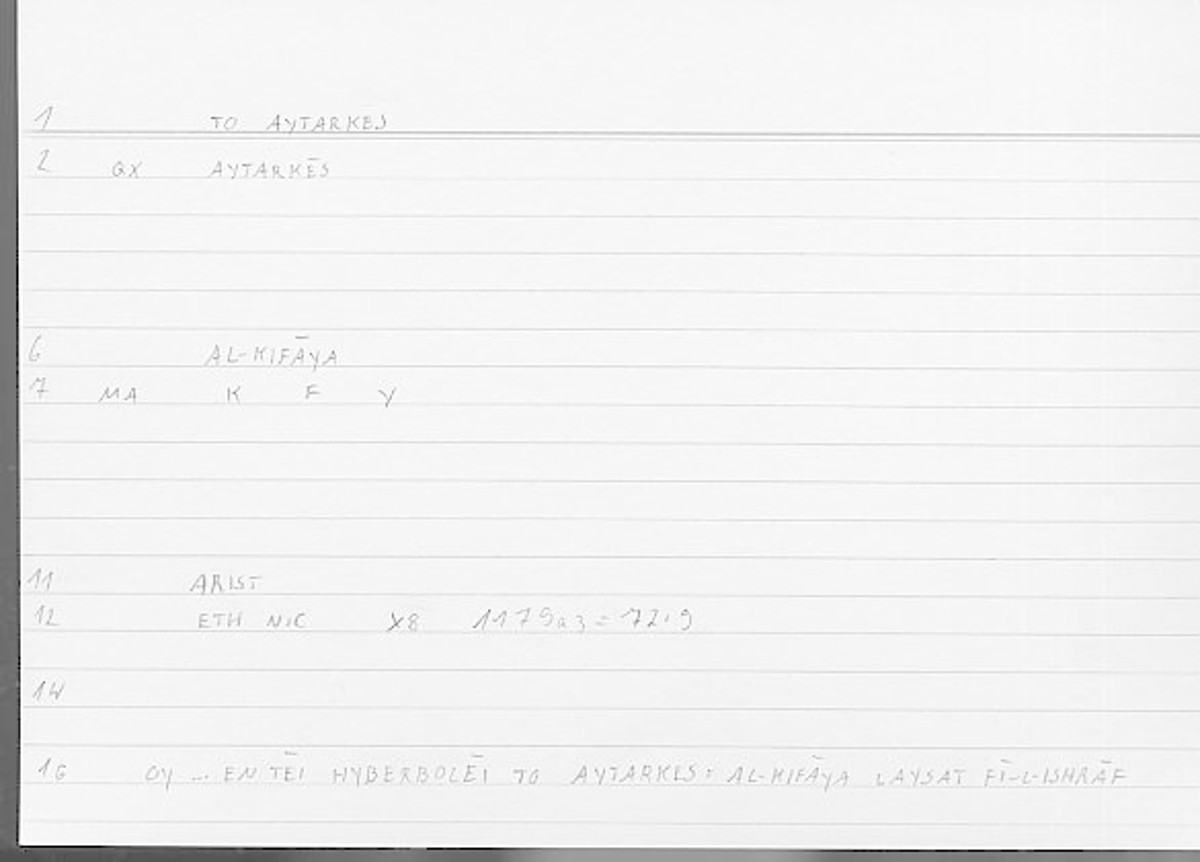 1 TO AYTARKES
2 QX AYTARKĒS
6 AL-KIFĀYA
7 MA K F Y
11 ARIST
12 ETH NIC X8 1179a3 = 72,9
14
16 OY ... EN TĒI HYBERBOLĒI TO AYTARKES : AL-KIFĀYA LAYSAT FĪ-L-ISHRĀF